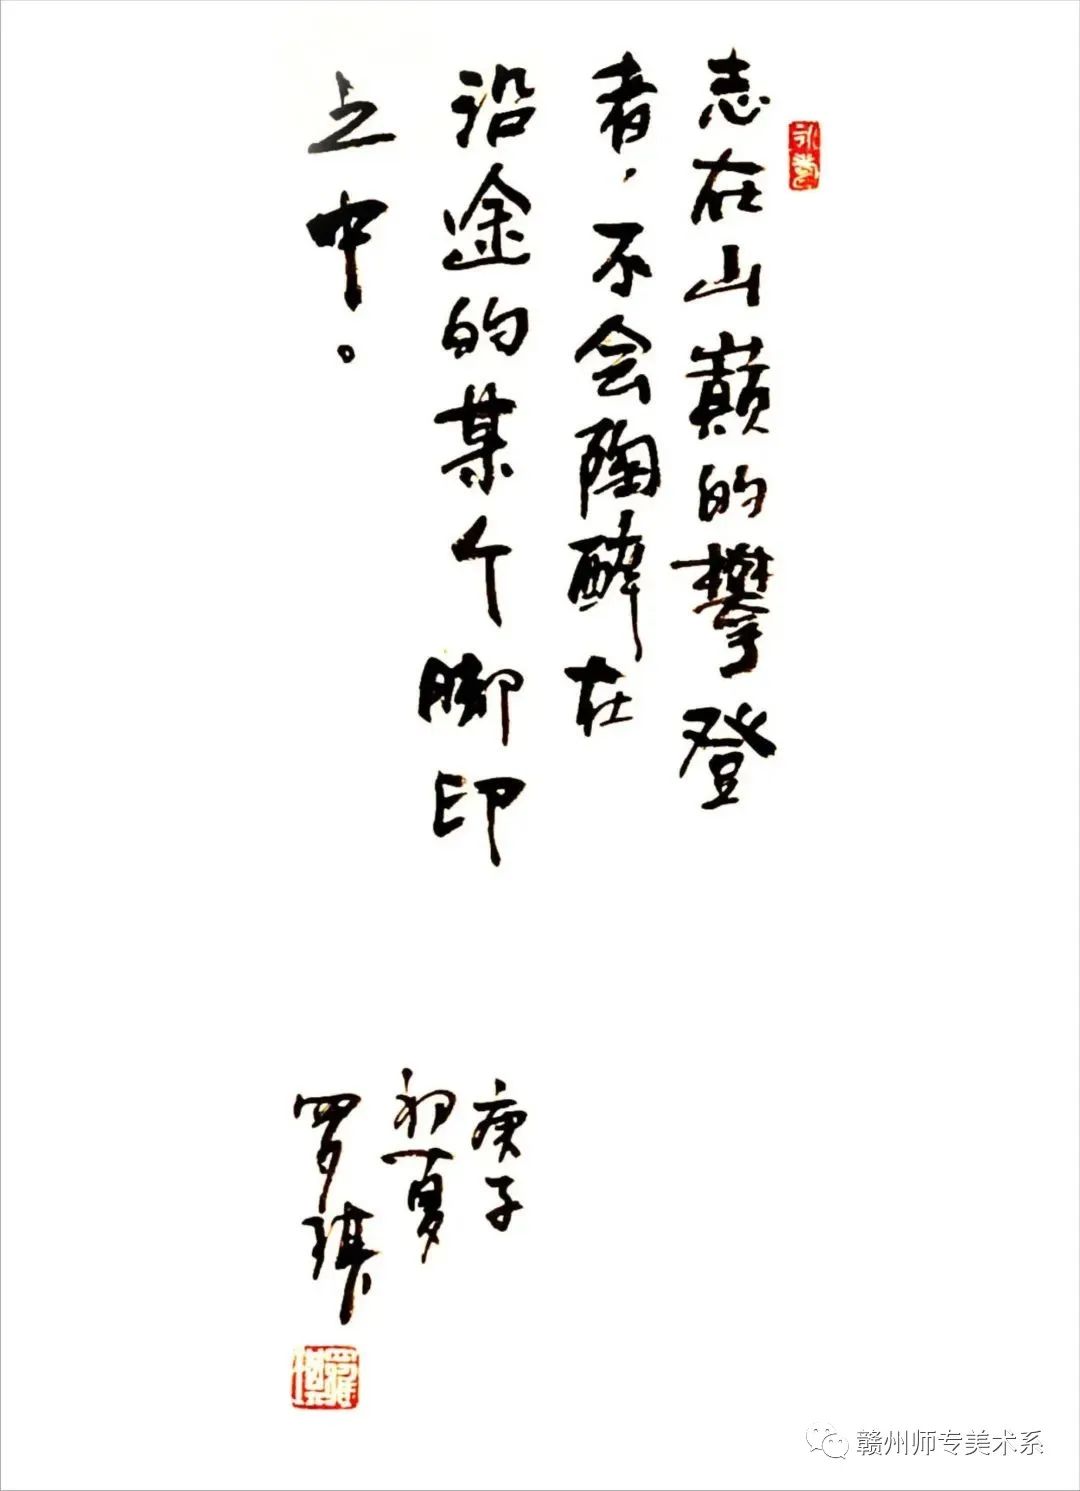 志在山巅的攀登
者，不会陶醉在
沿途的某个脚印
之中。
庚子
初夏
罗琪
赣州师专美术系